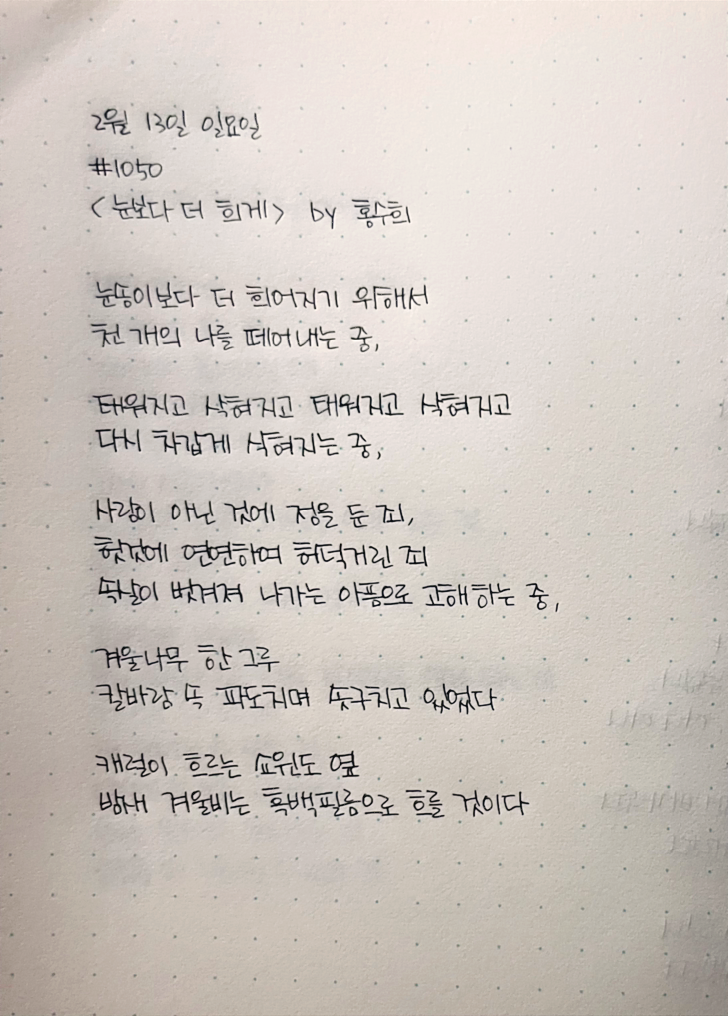 2월 13일 일요일
#1050
<눈보다 더 희게> by 홍수희
눈송이보다 더 희어지기 위해서
천 개의 나를 떼어내는 중,
태워지고 삭혀지고 태워지고 삭혀지고
다시 차갑게 삭혀지는 중,
사랑이 아닌 것에 정을 둔 죄,
헛것에 연연하여 허덕거린 죄
속살이 벗겨져 나가는 아픔으로 고해하는 중,
겨울나무 한 그루
칼바람 속 파도치며 솟구치고 있었다
캐럴이 흐르는 쇼윈도 옆
밤새 겨울비는 흑백필름으로 흐를 것이다